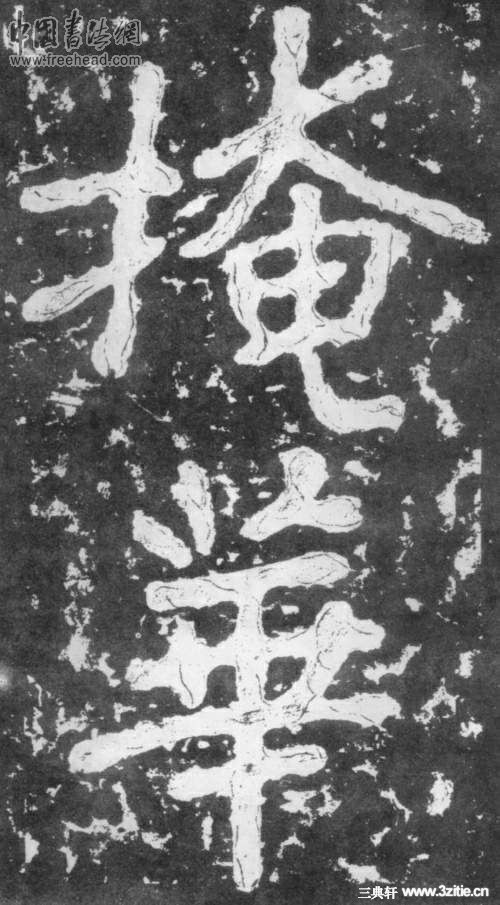 中国书法網
www.freehead.com
掩
華
三典轩 www.3zitie.cn